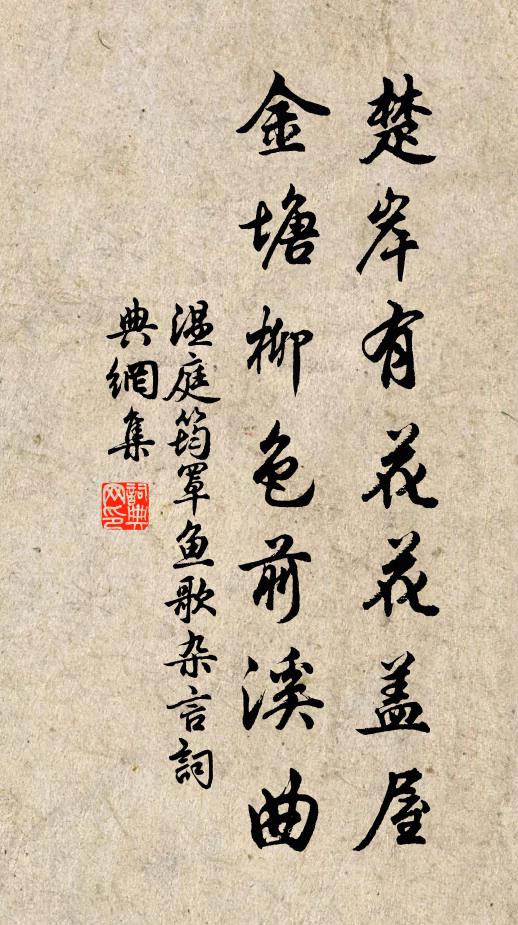 楚岸有花花盖屋
金塘柳色前溪曲
温庭筠罩鱼歌杂言词
典網集
詞典
网印